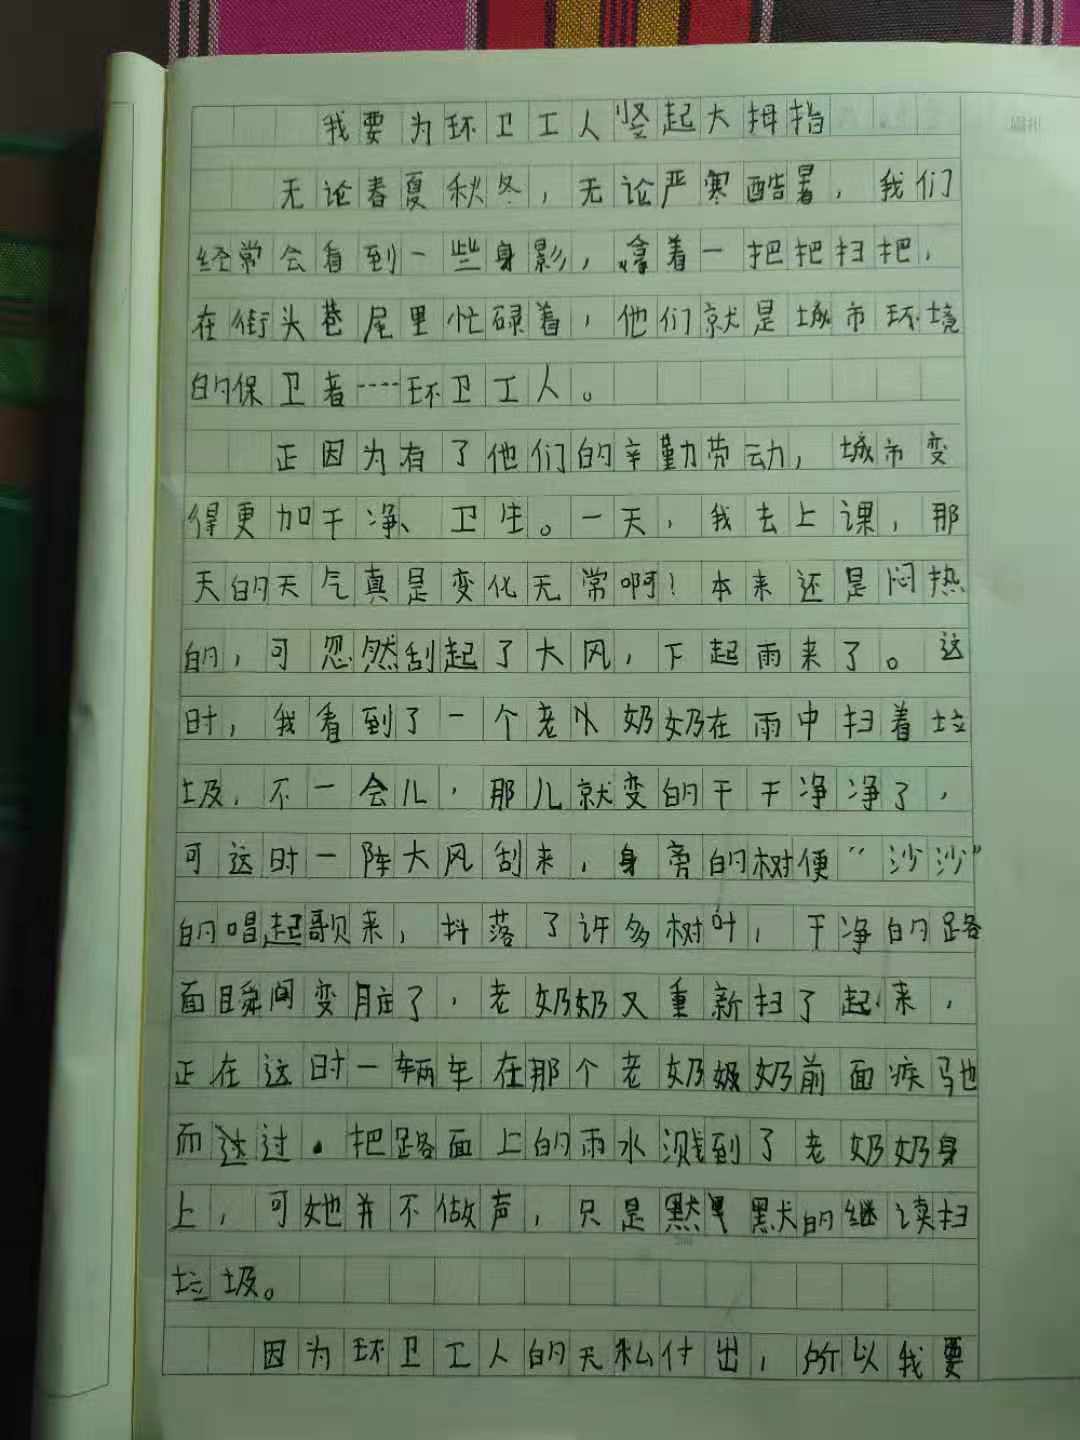 我要为环卫工人竖起大拇指
无论春夏秋冬，无论严寒酷暑，我们
经常会看到一些身影，拿着一把把扫把，
在街头巷尾里忙碌着，他们就是城市环境
的保卫者····环卫工人。
正因为有了他们的辛勤劳动，城市变
得更加干净、卫生。一天，我去上课，那
天的天气真是变化无常啊！本来还是闷热
的，可忽然刮起了大风，下起雨来了。这
时，我看到了一个老奶奶在雨中扫着垃
圾，不一会儿，那儿就变的干干净净了，
可这时一阵大风刮来，身旁的树便“沙沙”
的唱起歌来，抖落了许多树叶，干净的路
面瞬间变脏了，老奶奶又重新扫了起来，
正在这时一辆车在那个老奶奶前面疾驰
而过。把路面上的雨水溅到了老奶奶身
上，可她并不做声，只是默默的继读扫
垃圾。
因为环卫工人的无私付出，所以我要